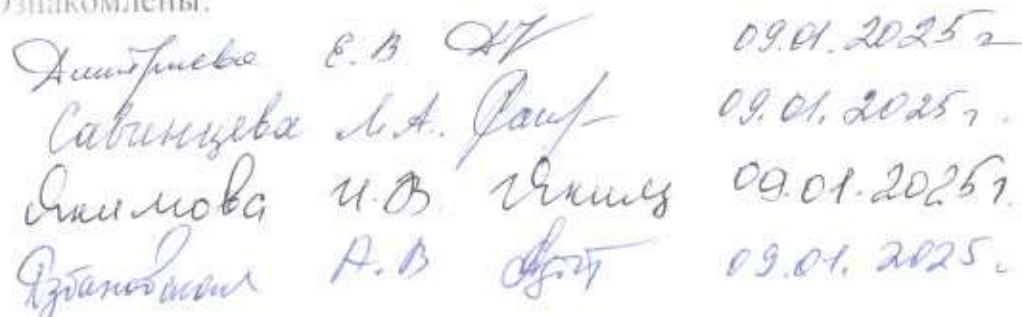 Ознакомлены:
Дмитриева Е.В. 09.01.2025 г
Савинцева Л.А. 09.01.2025 г.
Якимова И.В. Яким 09.01.2025 г.
А.В 09.01.2025 г.